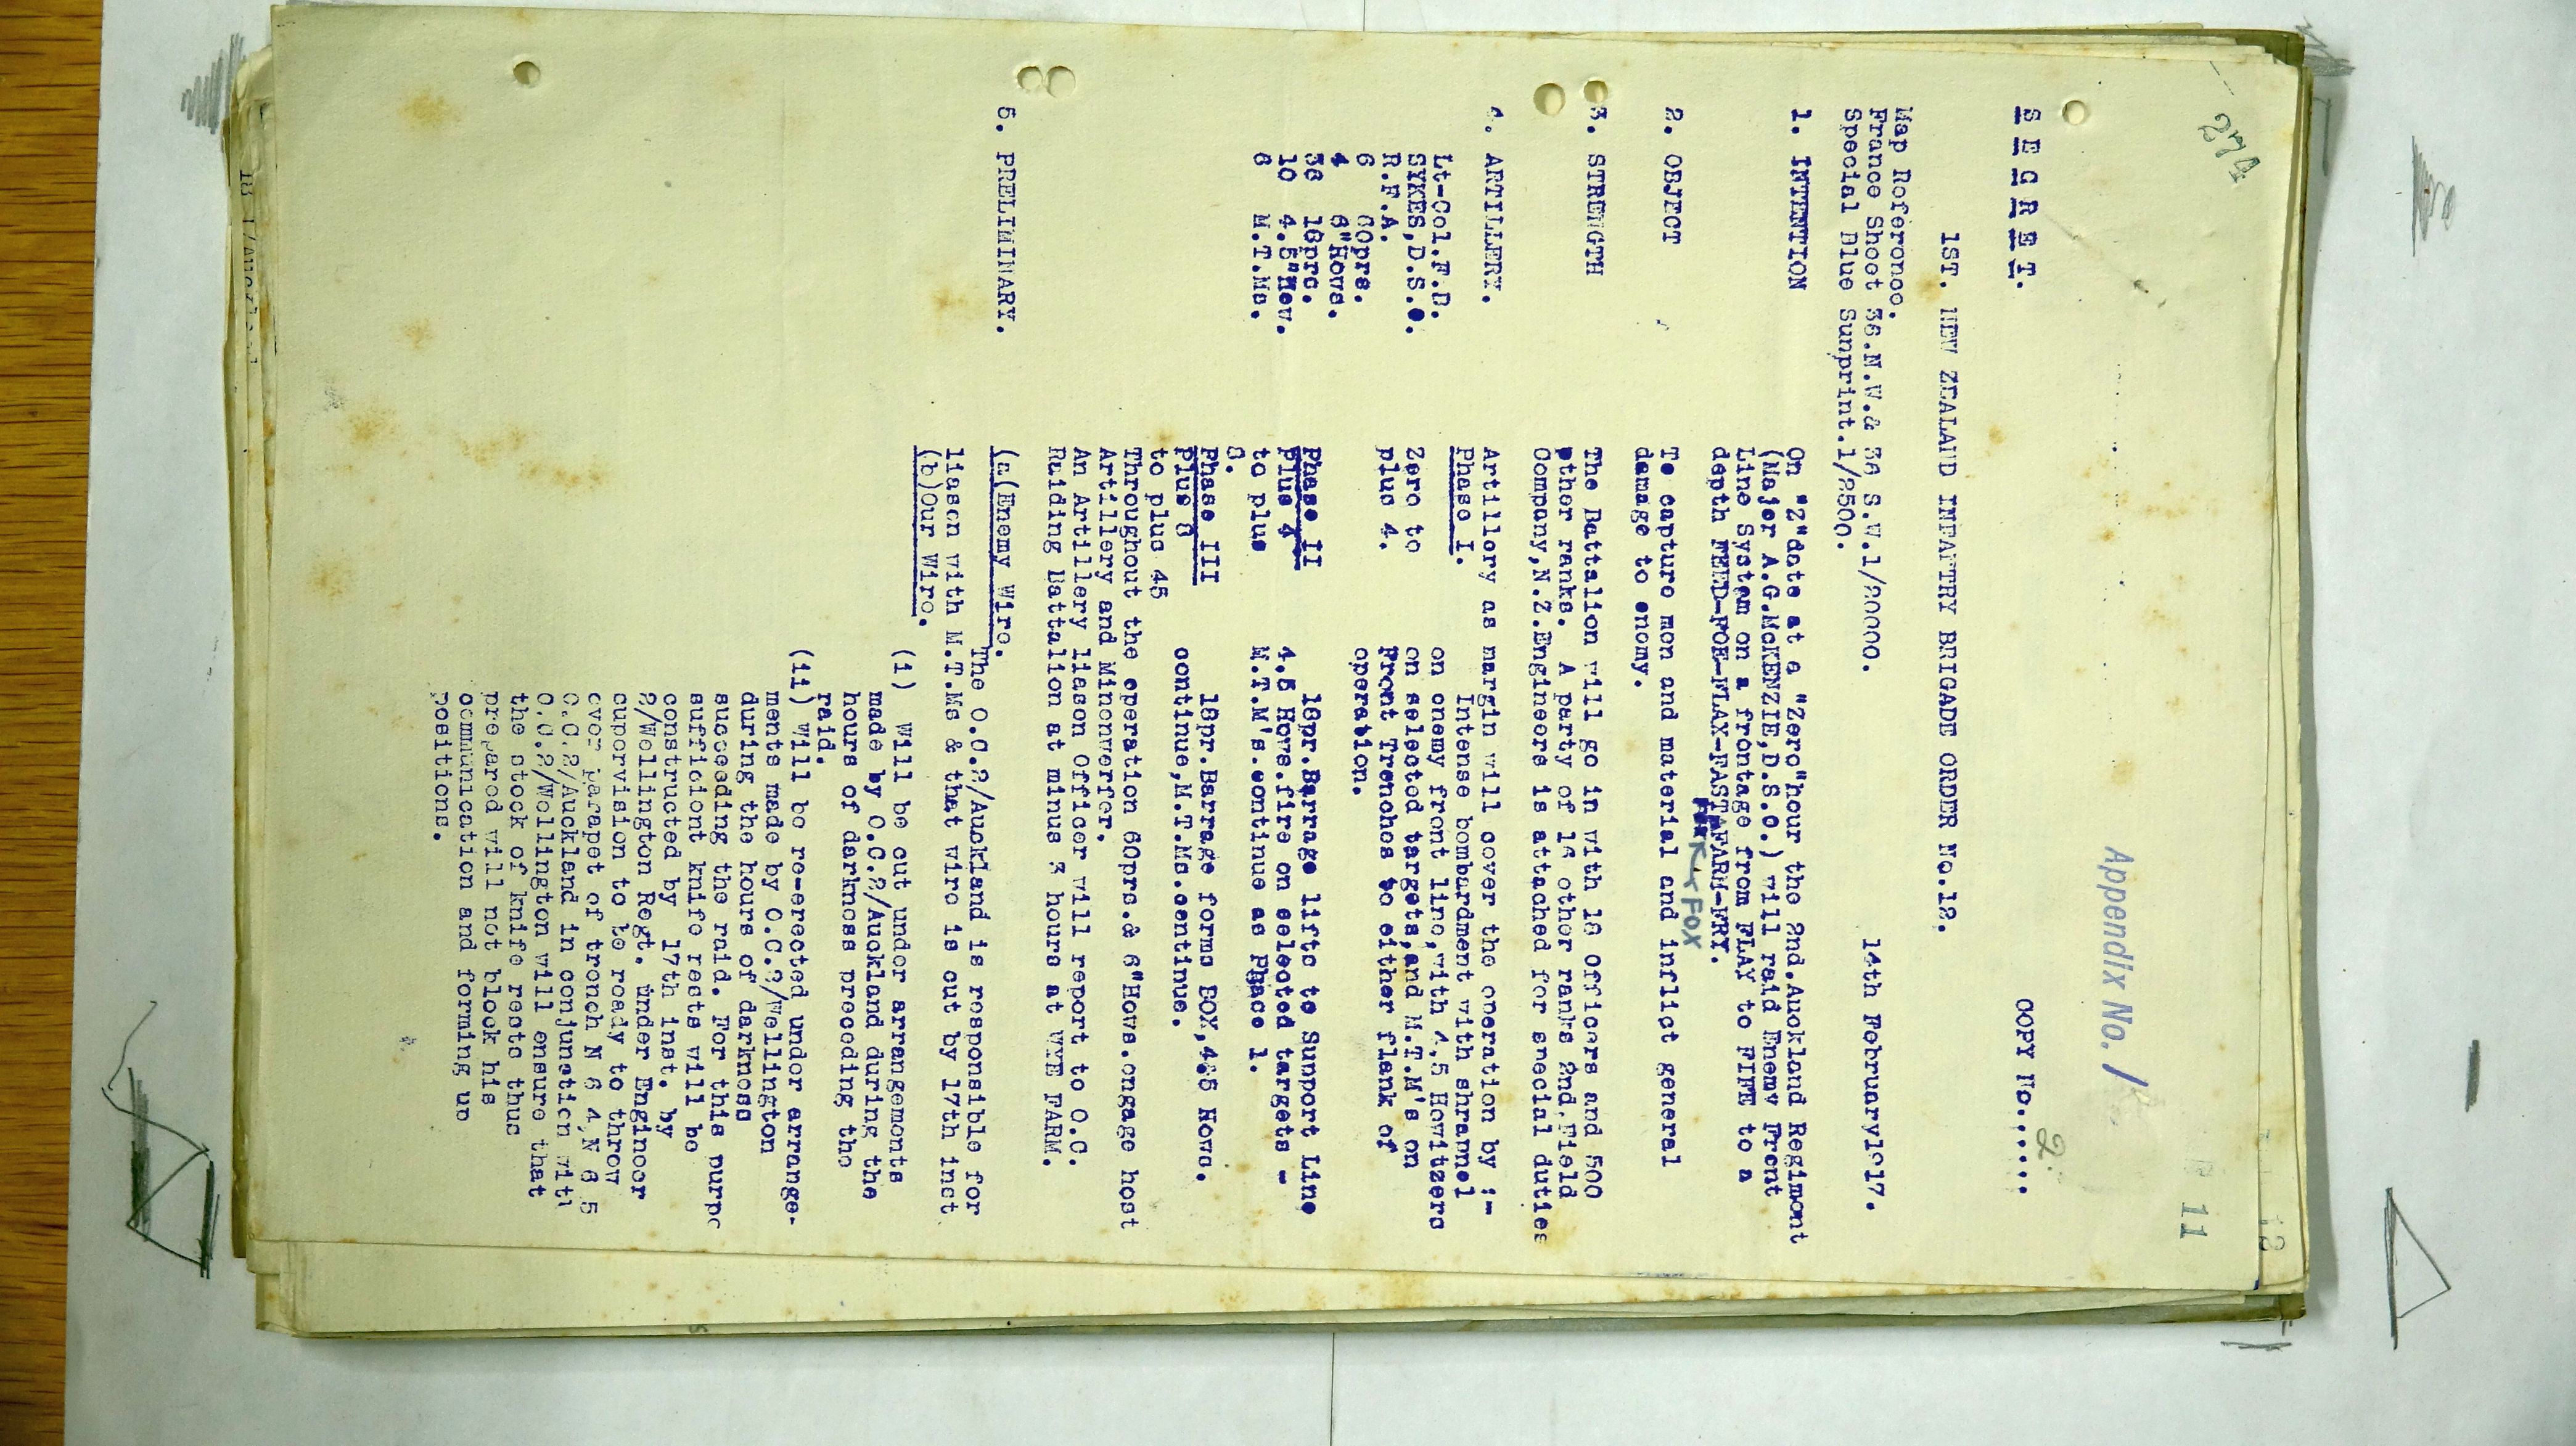 274
11
12
Appendix No. 1
2.
S E C R E T.
COPY No.......
1ST. NEW ZEALAND INFANTRY BRIGADE ORDER No.12.
Map Reference.
France Sheet 36.N.W.& 36 S.W.1/20000.
14th February1917.
Special Blue Sunprint.1/2500.
1. INTENTION
On "Z"date at a "Zero"hour the 2nd.Auckland Regiment
(Major A.G.McKENZIE,D.S.O.) will raid Enemy Front
Line System on a frontage from FLAY to FIFE to a
depth FEED-FOE-FLAX-FAST-FARM-FRY.
FOX
2. OBJECT
To capture men and material and inflict general
damage to enemy.
3. STRENGTH
The Battalion will go in with 18 Officers and 500
other ranks. A party of 16 other ranks 2nd.Field
Company,N.Z.Engineers is attached for special duties
4. ARTILLERY.
Artillery as margin will cover the operation by :-
Lt-Col.F.D.
SYKES,D.S.O.
R.F.A.
6 60prs.
4 6"Hows.
36 18prs.
10 4.5"How.
6 M.T.Ms.
Phase I.
Zero to
plus 4.
Intense bombardment with shrapnel
on enemy front line,with 4.5 Howitzers
on selected targets,and M.T.M's on
Front Trenches to either flank of
operation.
Phase II
Plus 4
to plus
8.
18pr.Barrage lifts to Support Line
4.5 Hows.fire on selected targets -
M.T.M's.continue as Phace 1.
Phase III
plus 8
to plus 45
18pr.Barrage forms BOX,4.5 Hows.
continue,M.T.Ms.continue.
Throughout the operation 60prs.& 6"Hows.engage host
Artillery and Minenwerfer.
An Artillery liason Officer will report to O.C.
Raiding Battalion at minus 3 hours at WYE FARM.
5. PRELIMINARY.
(a(Enemy Wire.
The O.C.2/Auckland is responsible for
liason with M.T.Ms & that wire is cut by 17th inst
(b)Our Wire.
(i) Will be cut under arrangements
made by O.C.2/Auckland during the
hours of darkness preceding the
raid.
(ii) Will be re-erected under arrange-
ments made by O.C.2/Wellington
during the hours of darkness
succeeding the raid. For this purpo
sufficient knife rests will be
constructed by 17th inst. by
2/Wellington Regt. under Engineer
supervision to be ready to throw
over parapet of trench N 6 4,N 6 5
O.C.2/Auckland in conjunction with
O.C.2/Wellington will ensure that
the stock of knife rests thus
prepared will not block his
communication and forming up
positions.